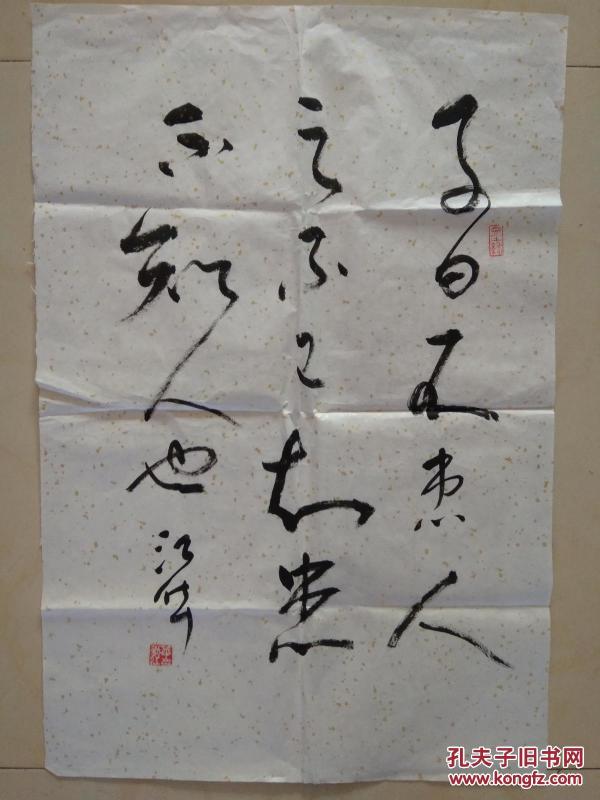 子曰不患人
之不己知患
不知人也
江
孔夫子旧书网
www.kongfz.com